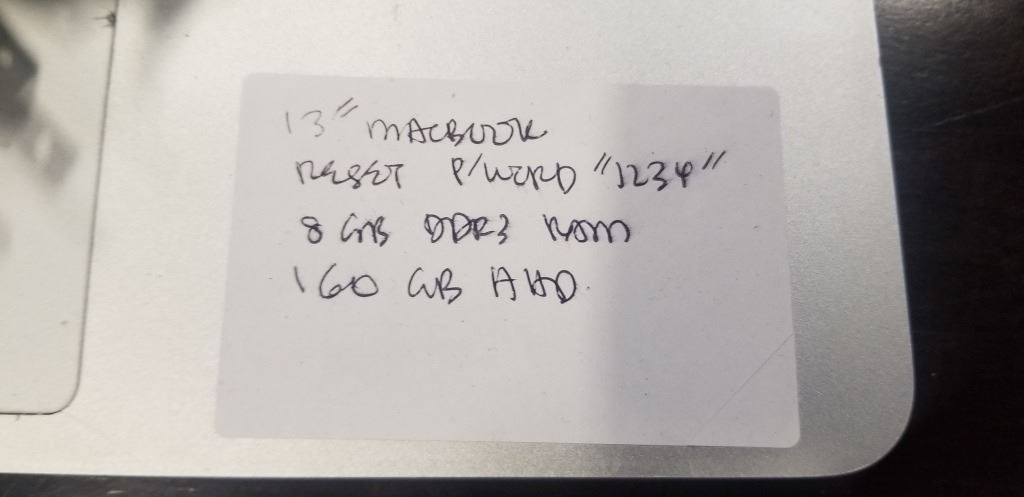 13" MACBOOK
RESET P/WORD "1234"
8 GB DDR3 ROM
160 GB HHD.